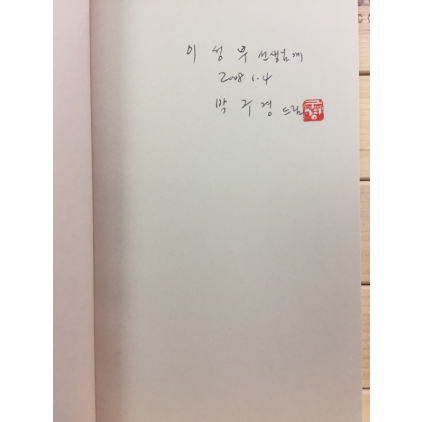 이 성 우 선생님께
2008 1.4
박 구 경 드림